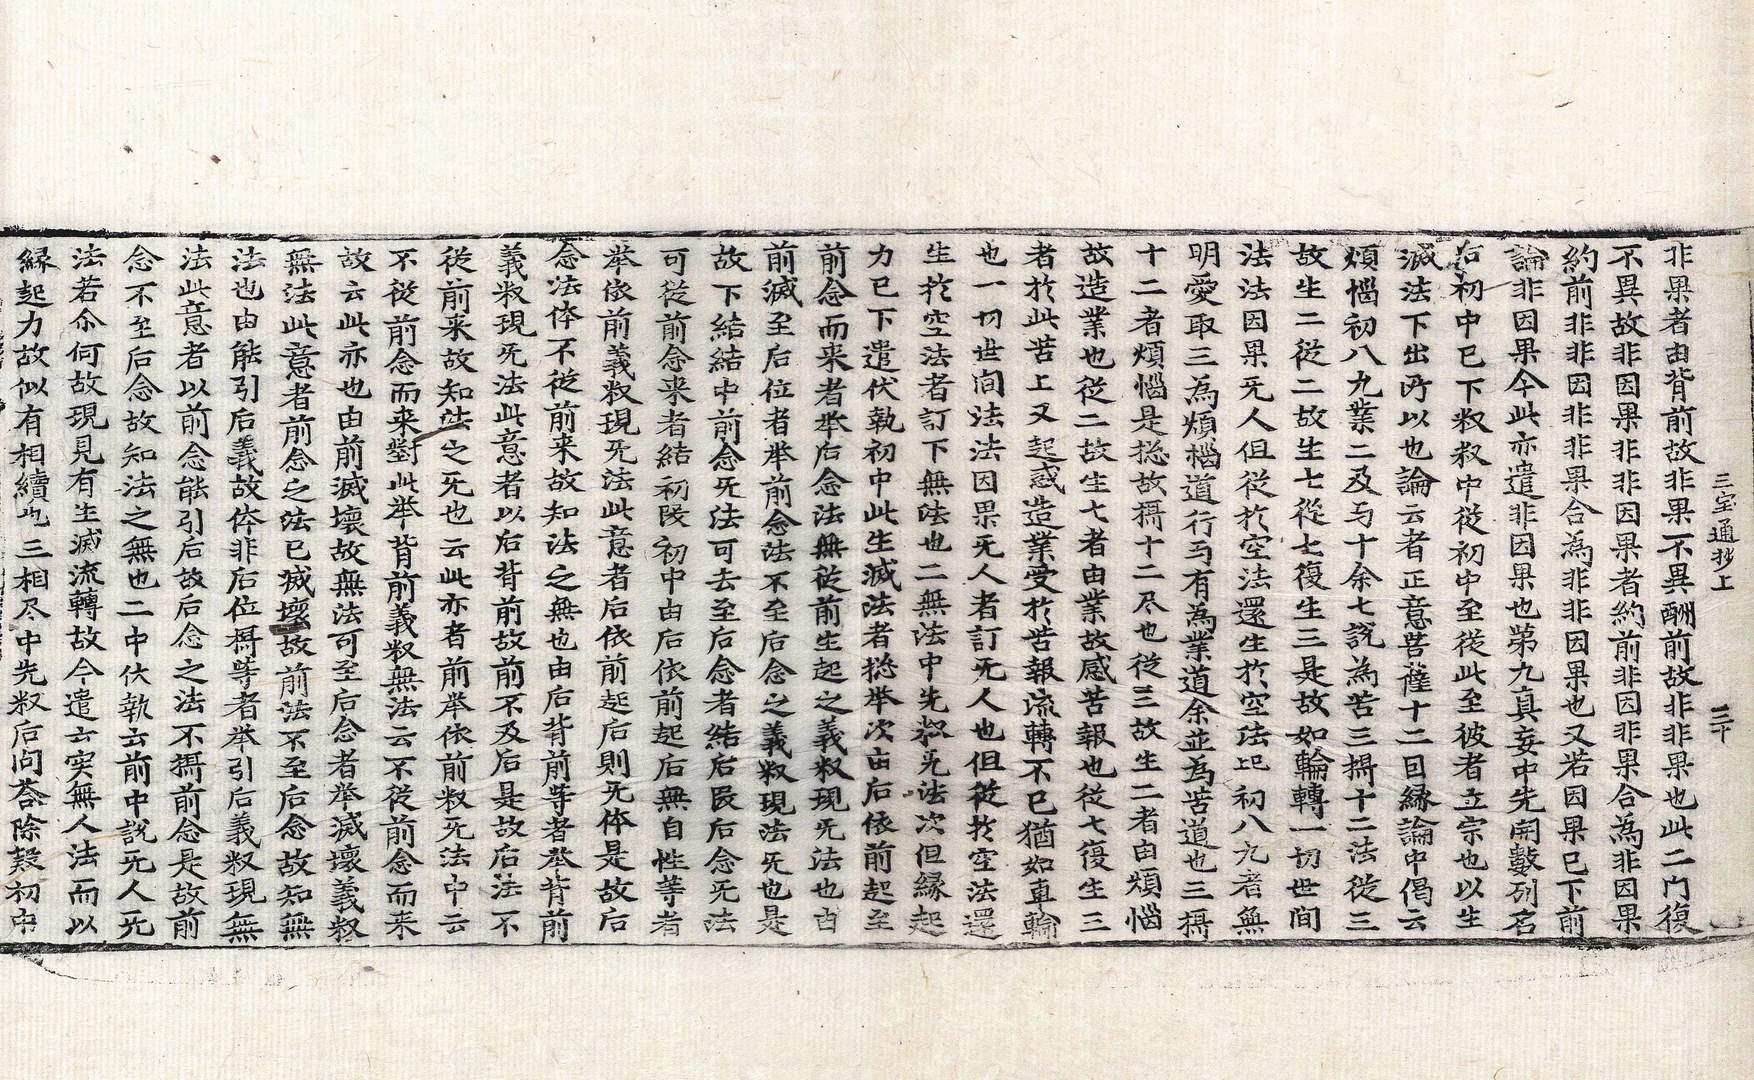 三宝通抄上 三十
非果者由背前故非果不異酬前故非非果也此二门復
不異故非因果非非因果者約前非因非果合為非因果
約前非非因非非果合為非非因果也又若因果已下前
論非因果今此亦遣非因果也第九真妄中先開數列名
右初中已下叙叙中従初中至従此至彼者立宗也以生
滅法下出所以也論云者正意菩薩十二因縁論中偈云
煩惱初八九業二及与十余七說為苦三攝十二法従三
故生二従二故生七従七復生三是故如輪轉一切世間
法法因果旡人但従於空法還生於空法已初八九者無
明愛取三為煩惱道行与有為業道余並為苦道也三攝
十二者煩惱是揔故攝十二尽也従三故生二者由煩惱
故造業也従二故生七者由業故感苦報也従七復生三
者於此苦上又起惑造業受於苦報流轉不已猶如車輪
也一切世间法法因果旡人者訂旡人也但従於空法還
生於空法者訂下無法也二無法中先叙旡法次但縁起
力已下遣伏執初中此生滅法者揔举次由后依前起至
前念而来者举后念法無従前生起之義叙現旡法也由
前滅至后位者举前念法不至后念之義叙現法旡也是
故下結結中前念旡法可去至后念者結后段后念旡法
可従前念来者結初段初中由后依前起后無自性等者
举依前義叙現旡法此意者后依前起后則旡体是故后
念法体不従前来故知法之無也由后背前等者举背前
義叙現旡法此意者以后背前故前不及后是故后法不
従前来故知法之旡也云此亦者前举依前叙旡法中云
不従前念而来對此举背前義叙無法云不従前念而来
故云此亦也由前滅壞故無法可至后念者举滅壞義叙
無法此意者前念之法已滅壞故前法不至后念故知無
法也由能引后義故体非后位攝等者举引后義叙現無
法此意者以前念能引后故后念之法不攝前念是故前
念不至后念故知法之無也二中伏執云前中說旡人旡
法若尒何故現見有生滅流轉故今遣云实無人法而以
縁起力故似有相續也三相尽中先叙后问荅除疑初中